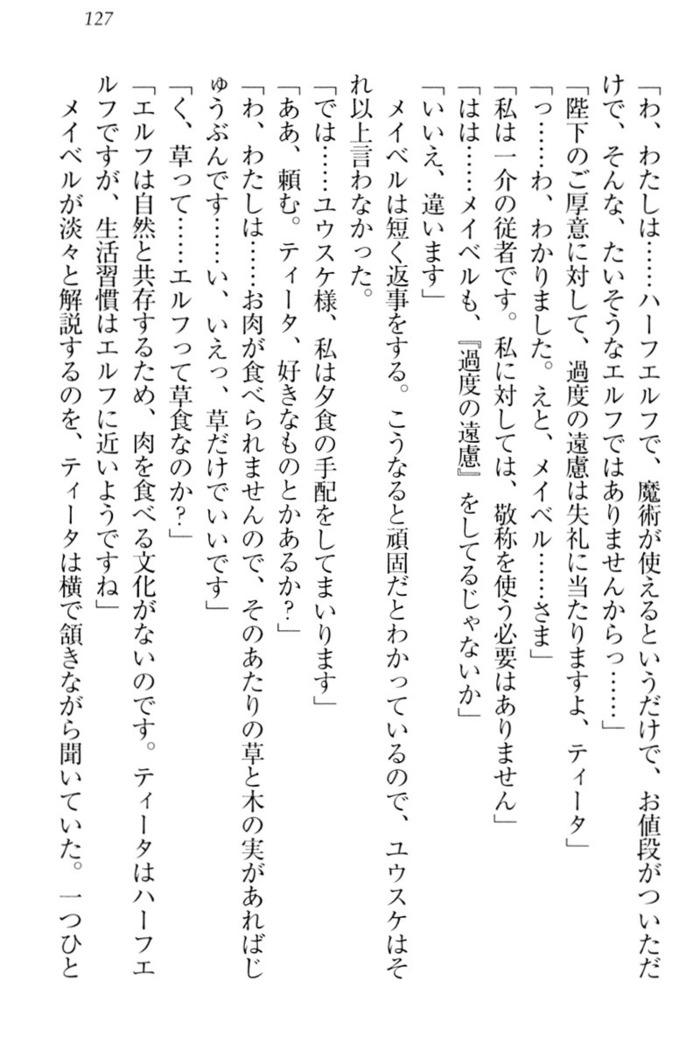 127
「わ、わたしは……ハーフエルフで、魔術が使えるというだけで、お値段がついただ
けで、そんな、たいそうなエルフではありませんからっ……」
「陛下のご厚意に対して、過度の遠慮は失礼に当たりますよ、ティータ」
「っ……わ、わかりました。えと、メイベル……さま」
「私は一介の従者です。私に対しては、敬称を使う必要はありません」
「はは……メイベルも、『過度の遠慮』をしてるじゃないか」
「いいえ、違います」
　メイベルは短く返事をする。こうなると頑固だとわかっているので、ユウスケはそ
れ以上言わなかった。
「では……ユウスケ様、私は夕食の手配をしてまいります」
「ああ、頼む。ティータ、好きなものとかあるか？」
「わ、わたしは……お肉が食べられませんので、そのあたりの草と木の実があればじ
ゅうぶんです……い、いえっ、草だけでいいです」
「く、草って……エルフって草食なのか？」
「エルフは自然と共存するため、肉を食べる文化がないのです。ティータはハーフエ
ルフですが、生活習慣はエルフに近いようですね」
　メイベルが淡々と解説するのを、ティータは横で頷きながら聞いていた。一つひと